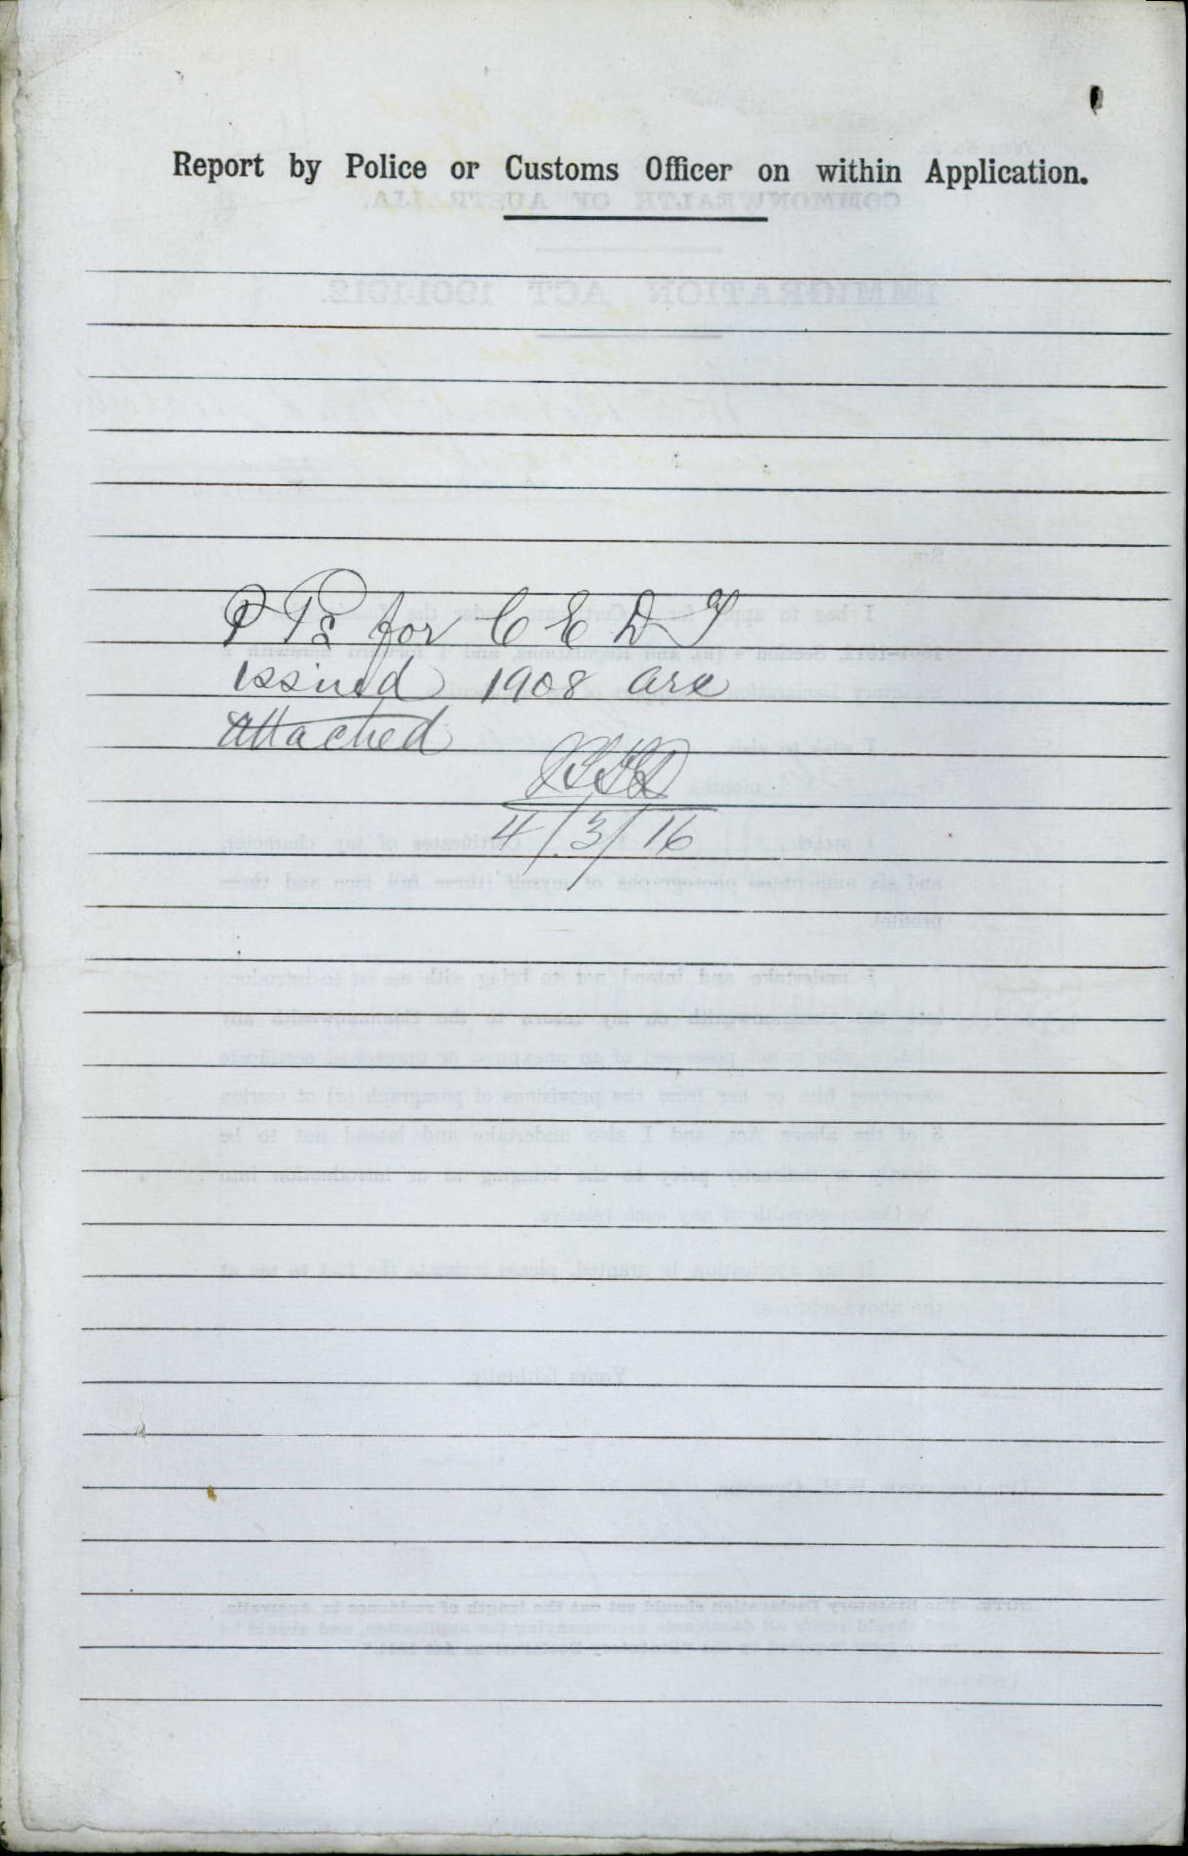 Report by Police or Customs Officer on within Application.
P Ps for C E D T
issued 1908 are
attached
4/3/16